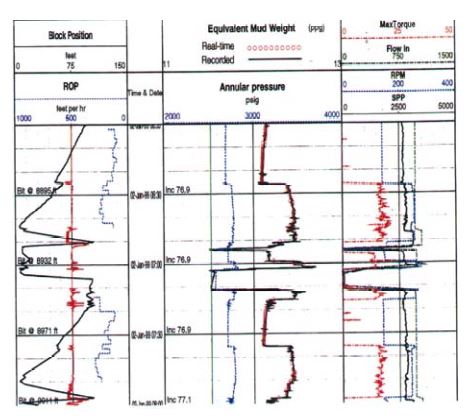 Block Position
feet
0 75 150
ROP
feet per hr
1000 500 0
Time & Date
Equivalent Mud Weight (ppg)
Real-time
Recorded
11 13
Annular pressure
psig
2000 3000 4000
MaxTorque
0 25 50
Flow In
0 750 1500
RPM
0 200 400
SPP
0 2500 5000
Bit @ 8895 ft
02-Jan-99 06:30
Inc 76.9
Bit @ 8932 ft
02-Jan-99 07:00
Inc 76.9
Bit @ 8971 ft
02-Jan-99 07:30
Inc 76.9
Bit @ 9011 ft
Inc 77.1